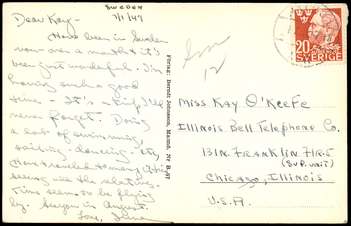 SWEDEN
7/1/47
Dear Kay -
Have been in Sweden
now over a month & it's
been just wonderful. I'm
having such a good
time - It's a trip I'll
never forget. Doing
a lot of swimming,
sailing, dancing, etc.
Have travelled to many cities
seeing all the relatives.
Time seems to be flying
by. See you in August.
Love,
Förlag: Berndt Johnsson, Malmö. Nr B.
20
SVERIGE
Miss Kay O'Keefe
Illinois Bell Telephone Co.
1314 Franklin
(Sup. Unit)
Chicago, Illinois
U.S.A.